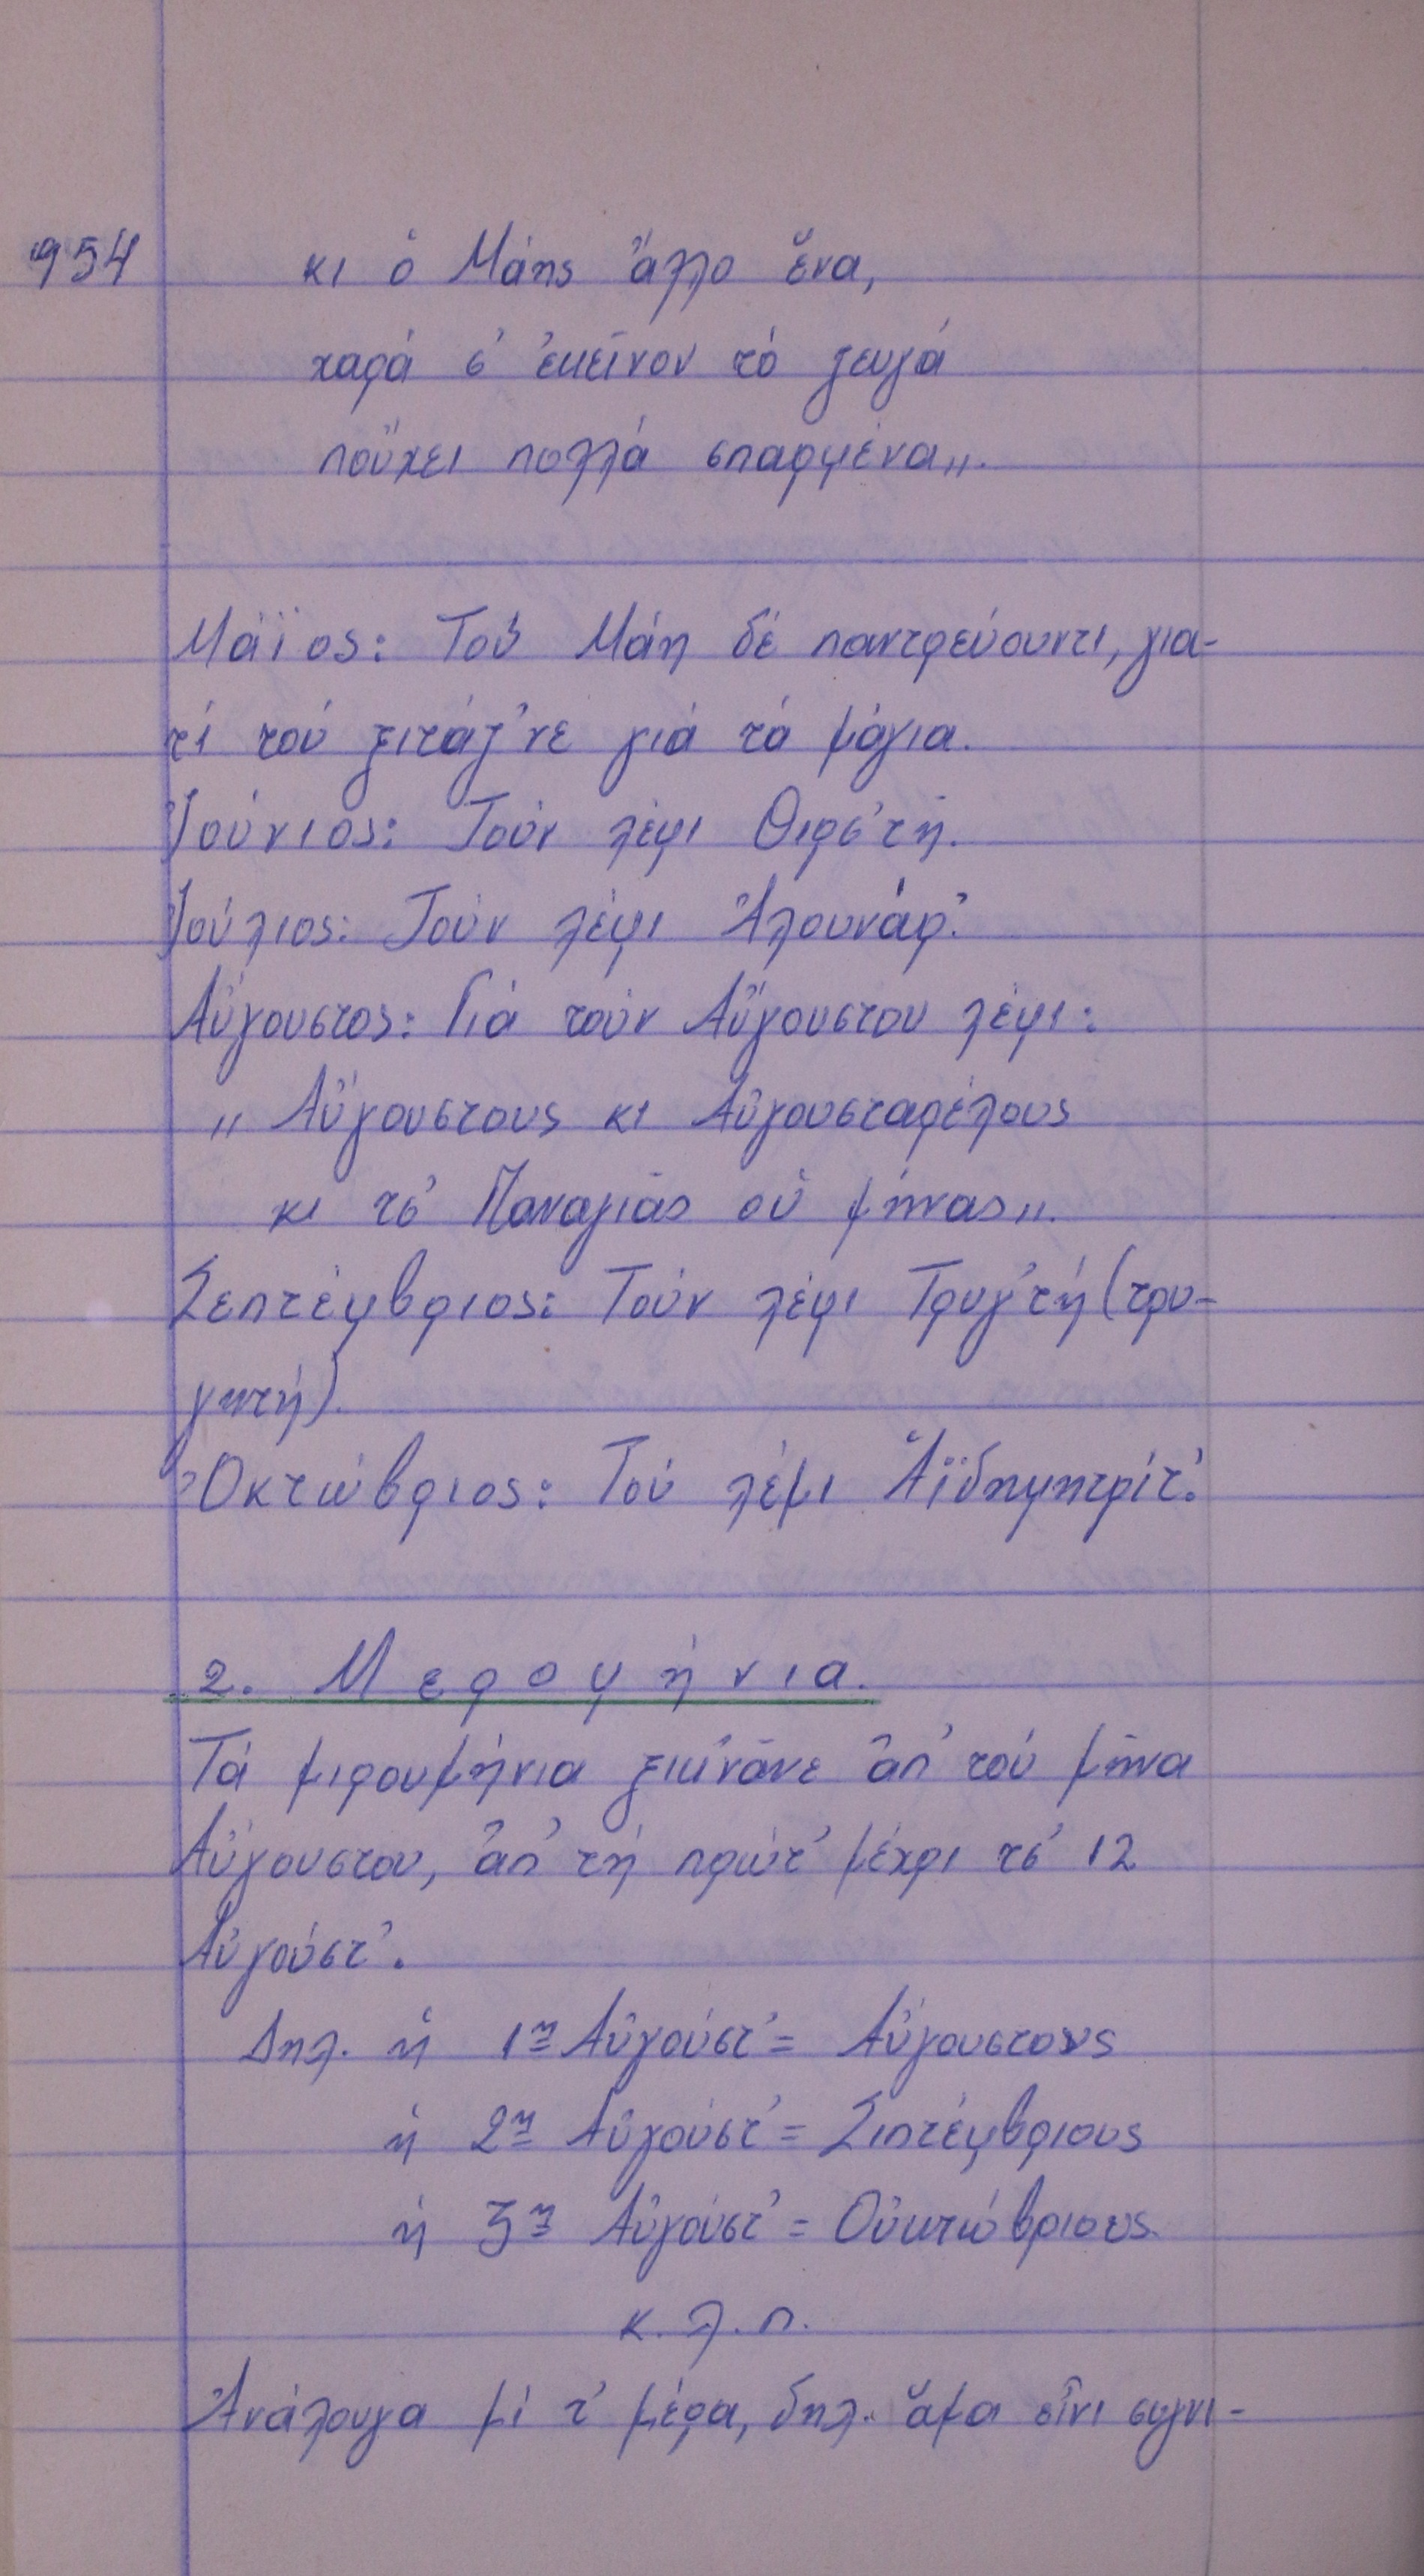 954 κι ὁ Μάης ἄλλο ἕνα,
χαρά σ' ἐκεῖνον τό ζευγά
πὄὔχει πολλά σπαρμένα„.
Μάϊος: Τού Μάη δέ παντρεύουντι, για-
τί τού ξιτάζ'νε γιά τά μάγια.
Ἰούνιος: Τούν λέμι Θιρσ'τή.
Ἰούλιος: Τούν λέμι Ἁλουνάρ'.
Αὔγουστος: Γιά τούν Αὔγουστου λέμι:
„ Αὔγουστους κι Αὐγουσταρέλους
κι τσ' Παναγιᾶς οὑ μήνας„.
Σεπτέμβριος: Τούν λέμι Τρυγ'τή (τρυ-
γητή).
Ὀκτώβριος: Τού λέμι Ἁϊδημητρίτ'.
2. Μερομήνια.
Τά μιρουμήνια ξικ'νᾶνε ἀπ' τού μῆνα
Αὔγουστου, ἀπ' τή πρώτ' μέχρι τσ' 12
Αὐγούστ'.
Δηλ. ἡ 1η Αὐγούστ' = Αὔγουστους
ἡ 2η Αὐγούστ' = Σιπτέμβριους
ἡ 3η Αὐγούστ' = Οὐκτώβριους.
κ.λ.π.
Ἀνάλουγα μί τ' μέρα, δηλ. ἅμα εἶνι συγνι-